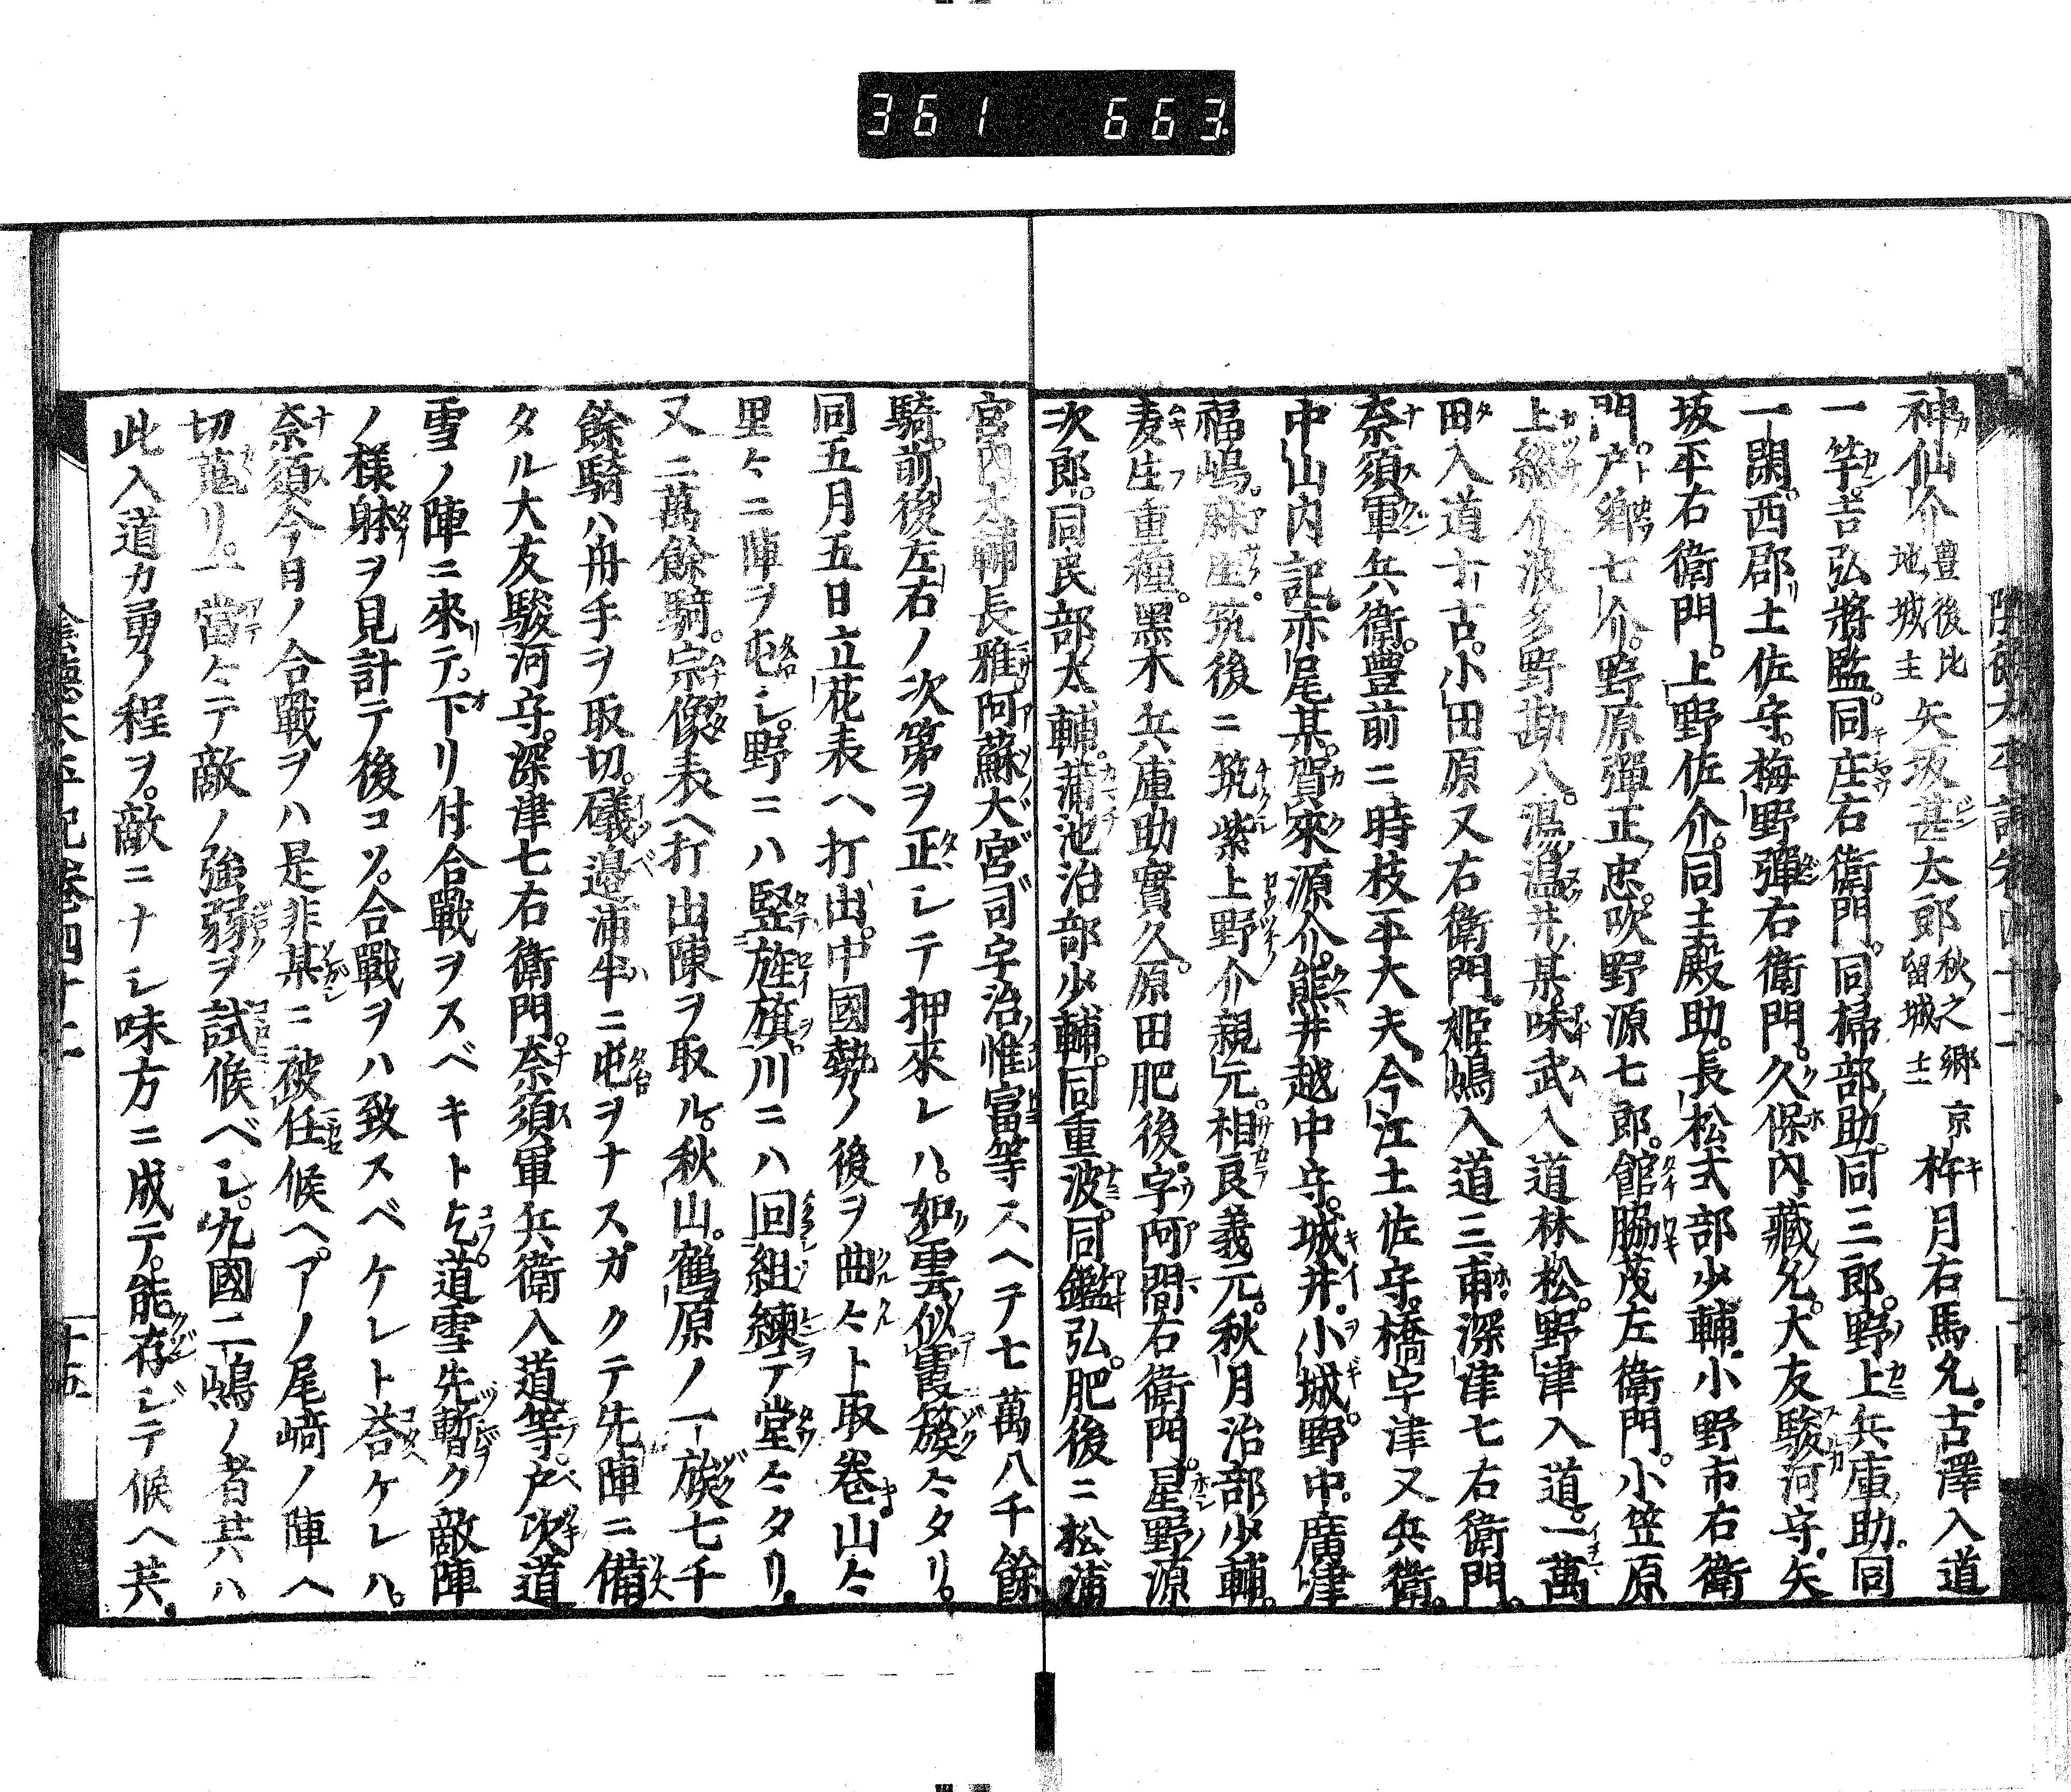 361 663
神仙介豊後比地ノ城主矢坂甚太郎秋之郷留城主京杵月右馬允。古澤入道
一竿。吉弘將監。同庄右衛門。同掃部助。同三郎。野上兵庫助。同
一閑。西郡土佐守。梅野彈右衛門。久保內藏允。大友駿河守。矢
坂平右衛門。上野佐介。同主殿助。長松式部少輔。小野市右衛
門。戸郷七介。野原彈正忠。吹野源七郎。館脇茂左衛門。小笠原
上総介波多野勘八。湯温井某味武入道林松。野津入道。一萬
田入道古。小田原又右衛門。姫嶋入道三甫。深津七右衛門。
奈須軍兵衛。豊前ニ時枝平大夫。今江土佐守。橋宇津又兵衛。
中山内記。赤尾某。賀來源介。熊井越中守。城井。小城野中。廣津
福嶋。麻生。筑後ニ筑紫上野介親元。相良義元。秋月治部少輔。
麦生重種。黑木兵庫助實久。原田肥後。字阿間右衛門。星野源
次郎。同民部太輔。蒲池治部少輔。同重波。同鑑弘。肥後ニ松蒲
宮內太輔長雅。阿蘇大宮司宇治惟富等スヘテ七萬八千餘
騎。前後左右ノ次第ヲ正シテ押來レハ。如雲似霞簇々タリ。
同五月五日立花表ヘ打出。中國勢ノ後ヲ曲々ト取卷。山々
里々ニ陣ヲ屯シ。野ニハ竪旌旗。川ニハ回組練テ堂々タリ。
又二萬餘騎。宗像表ヘ打出陳ヲ取ル。秋山。鶴原ノ一族七千
餘騎ハ舟手ヲ取切。礒邊浦半ニ屯ヲナス。カクテ先陣ニ備
タル大友駿河守。深津七右衛門。奈須軍兵衛入道等。戸次道
雪ノ陣ニ來リテ。下リ付合戰ヲスベキト乞。道雪先暫ク敵陣
ノ様躰ヲ見計テ後コソ。合戰ヲハ致スベケレト荅ケレハ。
奈須今日ノ合戰ヲハ是非某ニ被任候ヘ。アノ尾﨑ノ陣ヘ
切蒐リ。一當々テ敵ノ強弱ヲ試候ベシ。九國二嶋ノ者共ハ
此入道カ勇ノ程ヲ。敵ニナシ味方ニ成テ。能存シテ候ヘ共。
陰德太平記卷四十二
十五